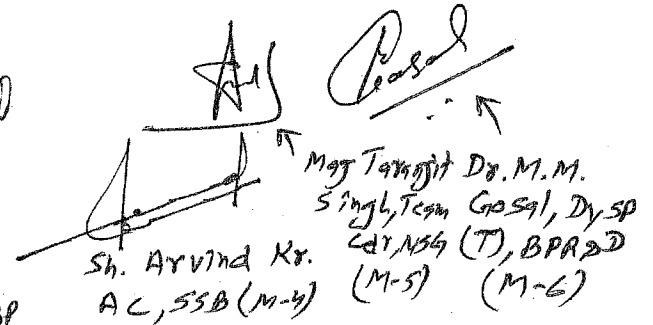 Gosal
Maj Taranjit
Singh, Team
Cdr, NSG
(M-5)
Dr. M.M.
Gosal, Dy, SP
(T), BPR&D
(M-6)
Sh. Arvind Kr.
AC, SSB (M-4)
SP